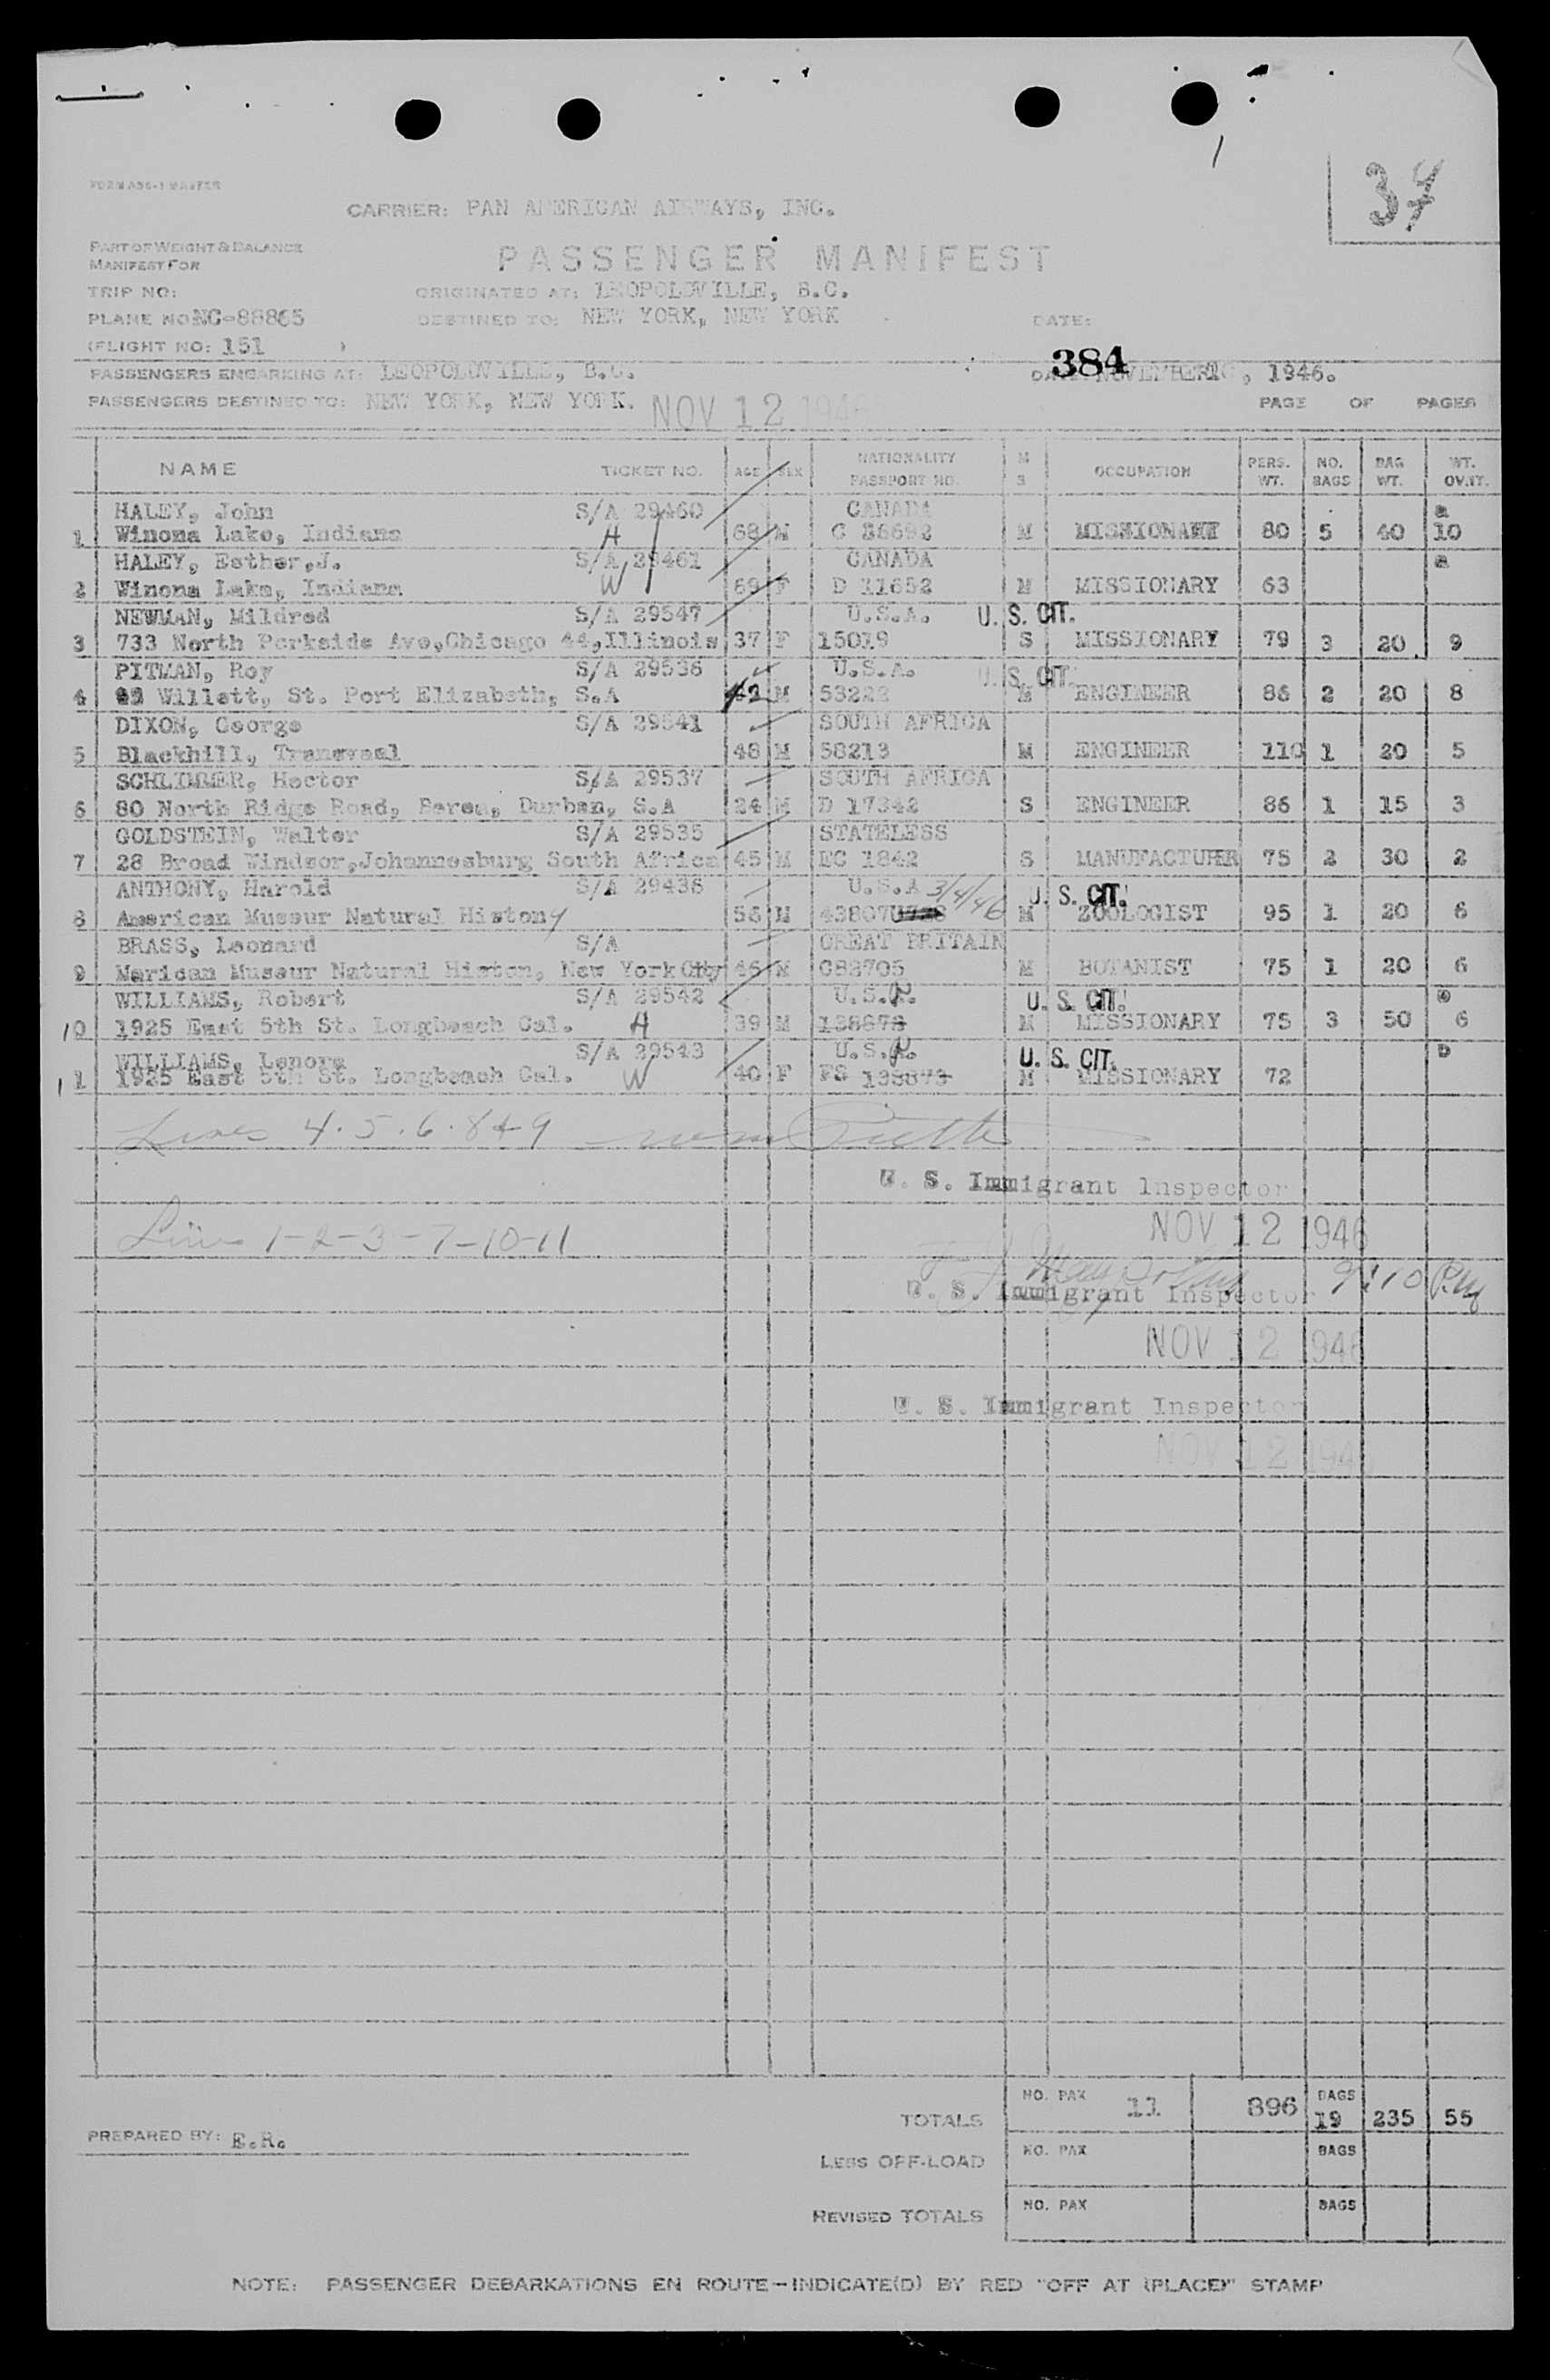 FORM A96-1 MASTER
37
CARRIER: PAN AMERICAN AIRWAYS, INC.
PART OF WEIGHT & BALANCE
MANIFEST FOR
PASSENGER MANIFEST
TRIP NO:
ORIGINATED AT: LEOPOLDVILLE, B.C.
PLANE NO NC-88865
DESTINED TO: NEW YORK, NEW YORK
DATE:
(FLIGHT NO: 151 )
384
PASSENGERS EMBARKING AT: LEOPOLDVILLE, B.C.
DATE NOVEMBER 10, 1946.
PASSENGERS DESTINED TO: NEW YORK, NEW YORK.
NOV 12 1946
PAGE OF PAGES
NAME TICKET NO. AGE SEX NATIONALITY PASSPORT NO. M S OCCUPATION PERS. WT. NO. BAGS BAG WT. WT. OV.IT.
HALEY, John S/A 29460 CANADA a
1 Winona Lake, Indiana H 68 M C 86692 M MISSIONARY 80 5 40 10
HALEY, Esther,J. S/A 29461 CANADA a
2 Winona Lake, Indiana W 69 F D 11652 M MISSIONARY 63
NEWMAN, Mildred S/A 29547 U.S.A. U. S. CIT.
3 733 North Parkside Ave,Chicago 44,Illinois 37 F 15019 S MISSIONARY 79 3 20. 9
PITMAN, Roy S/A 29536 U.S.A. U. S. CIT.
4 Willett, St. Port Elizabeth, S.A 42 M 53222 M ENGINEER 86 2 20 8
DIXON, George S/A 29541 SOUTH AFRICA
5 Blackhill, Transvaal 48 M 58213 M ENGINEER 110 1 20 5
SCHLIMMER, Hector S/A 29537 SOUTH AFRICA
6 80 North Ridge Road, Berea, Durban, S.A 24 M D 17342 S ENGINEER 86 1 15 3
GOLDSTEIN, Walter S/A 29535 STATELESS
7 28 Broad Windsor,Johannesburg South Africa 45 M EC 1842 S MANUFACTURER 75 2 30 2
ANTHONY, Harold S/A 29436 U.S.A 3/4/46 U. S. CIT.
8 American Museur Natural Histony 56 M 43807 M ZOOLOGIST 95 1 20 6
BRASS, Leonard S/A GREAT BRITAIN
9 Merican Museur Natural Histon, New York City 46 M C83705 M BOTANIST 75 1 20 6
WILLIAMS, Robert S/A 29542 U.S.A. U. S. CIT.
10 1925 East 5th St. Longbeach Cal. H 39 M 138873 M MISSIONARY 75 3 50 6
WILLIAMS, Lenora S/A 29543 U.S.A. U. S. CIT. D
11 1925 East 5th St. Longbeach Cal. W 40 F FS 138873 M MISSIONARY 72
Lines 4.5.6.8+9
U. S. Immigrant Inspector
NOV 12 1946
Lines 1-2-3-7-10-11
9:10 P.M
U. S. Immigrant Inspector
NOV 12 1946
U. S. Immigrant Inspector
NOV 12 1946
TOTALS NO. PAX 11 896 BAGS 19 235 55
PREPARED BY: E.R.
LESS OFF-LOAD NO. PAX BAGS
REVISED TOTALS NO. PAX BAGS
NOTE: PASSENGER DEBARKATIONS EN ROUTE-INDICATE(D) BY RED "OFF AT (PLACE)" STAMP